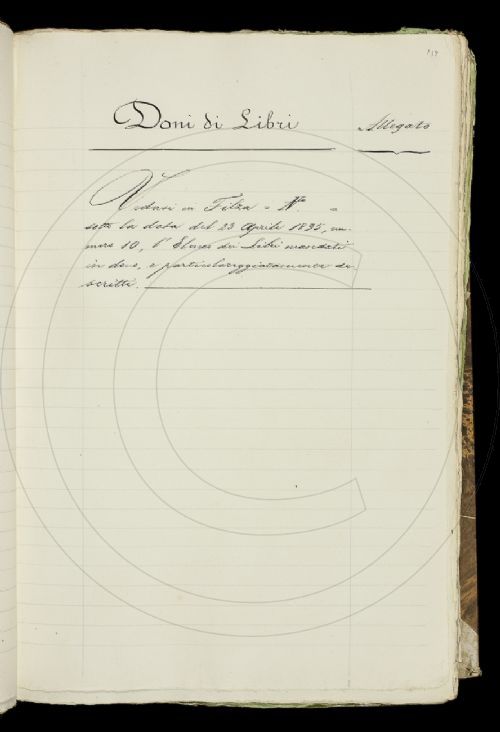 Doni di Libri Allegato
Vedasi in Filza = N.
sotto la data del 23 Aprile 1835, nu-
mero 10, l'Elenco dei Libri mandati
in dono, e particolareggiatamente de-
scritti.